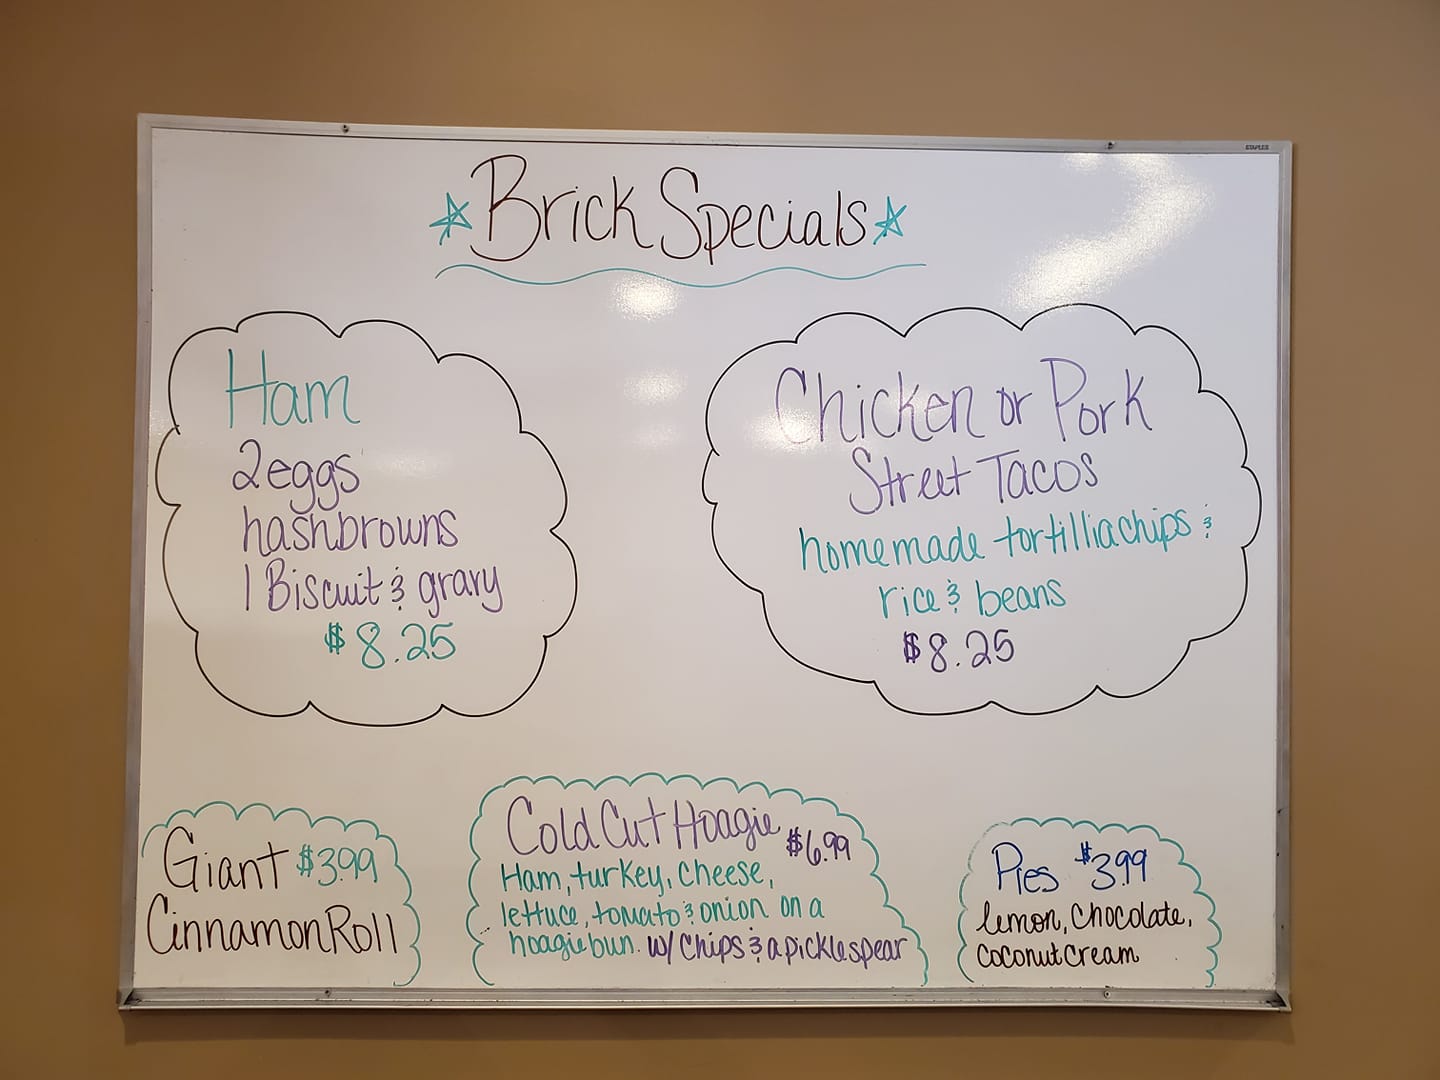 STAPLES
Brick Specials
Ham
2 eggs
hashbrowns
1 Biscuit & gravy
$8.25
Chicken or Pork
Street Tacos
homemade tortillia chips &
rice & beans
$8.25
Giant $3.99
Cinnamon Roll
Cold Cut Hoagie $6.99
Ham, turkey, cheese,
lettuce, tomato & onion on a
hoagie bun. w/ Chips & a pickle spear
Pies $3.99
lemon, Chocolate,
Coconut Cream